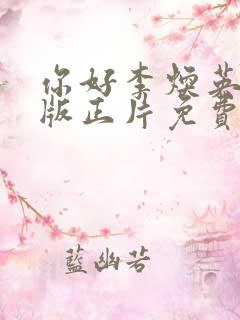 你好李焕英
版正片免費
藍幽若